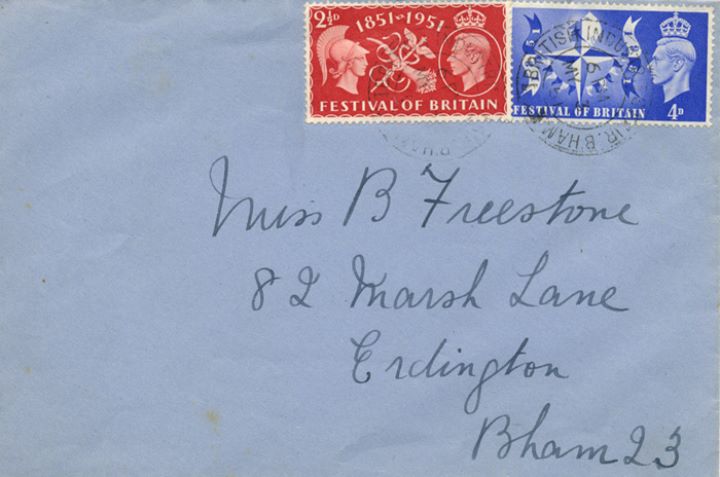 2½D
1851-1951
FESTIVAL OF BRITAIN
1851
1951
FESTIVAL OF BRITAIN
4D
BRITISH INDUS
B'HAM
Miss B Freestone
82 Marsh Lane
Erdington
Bham 23